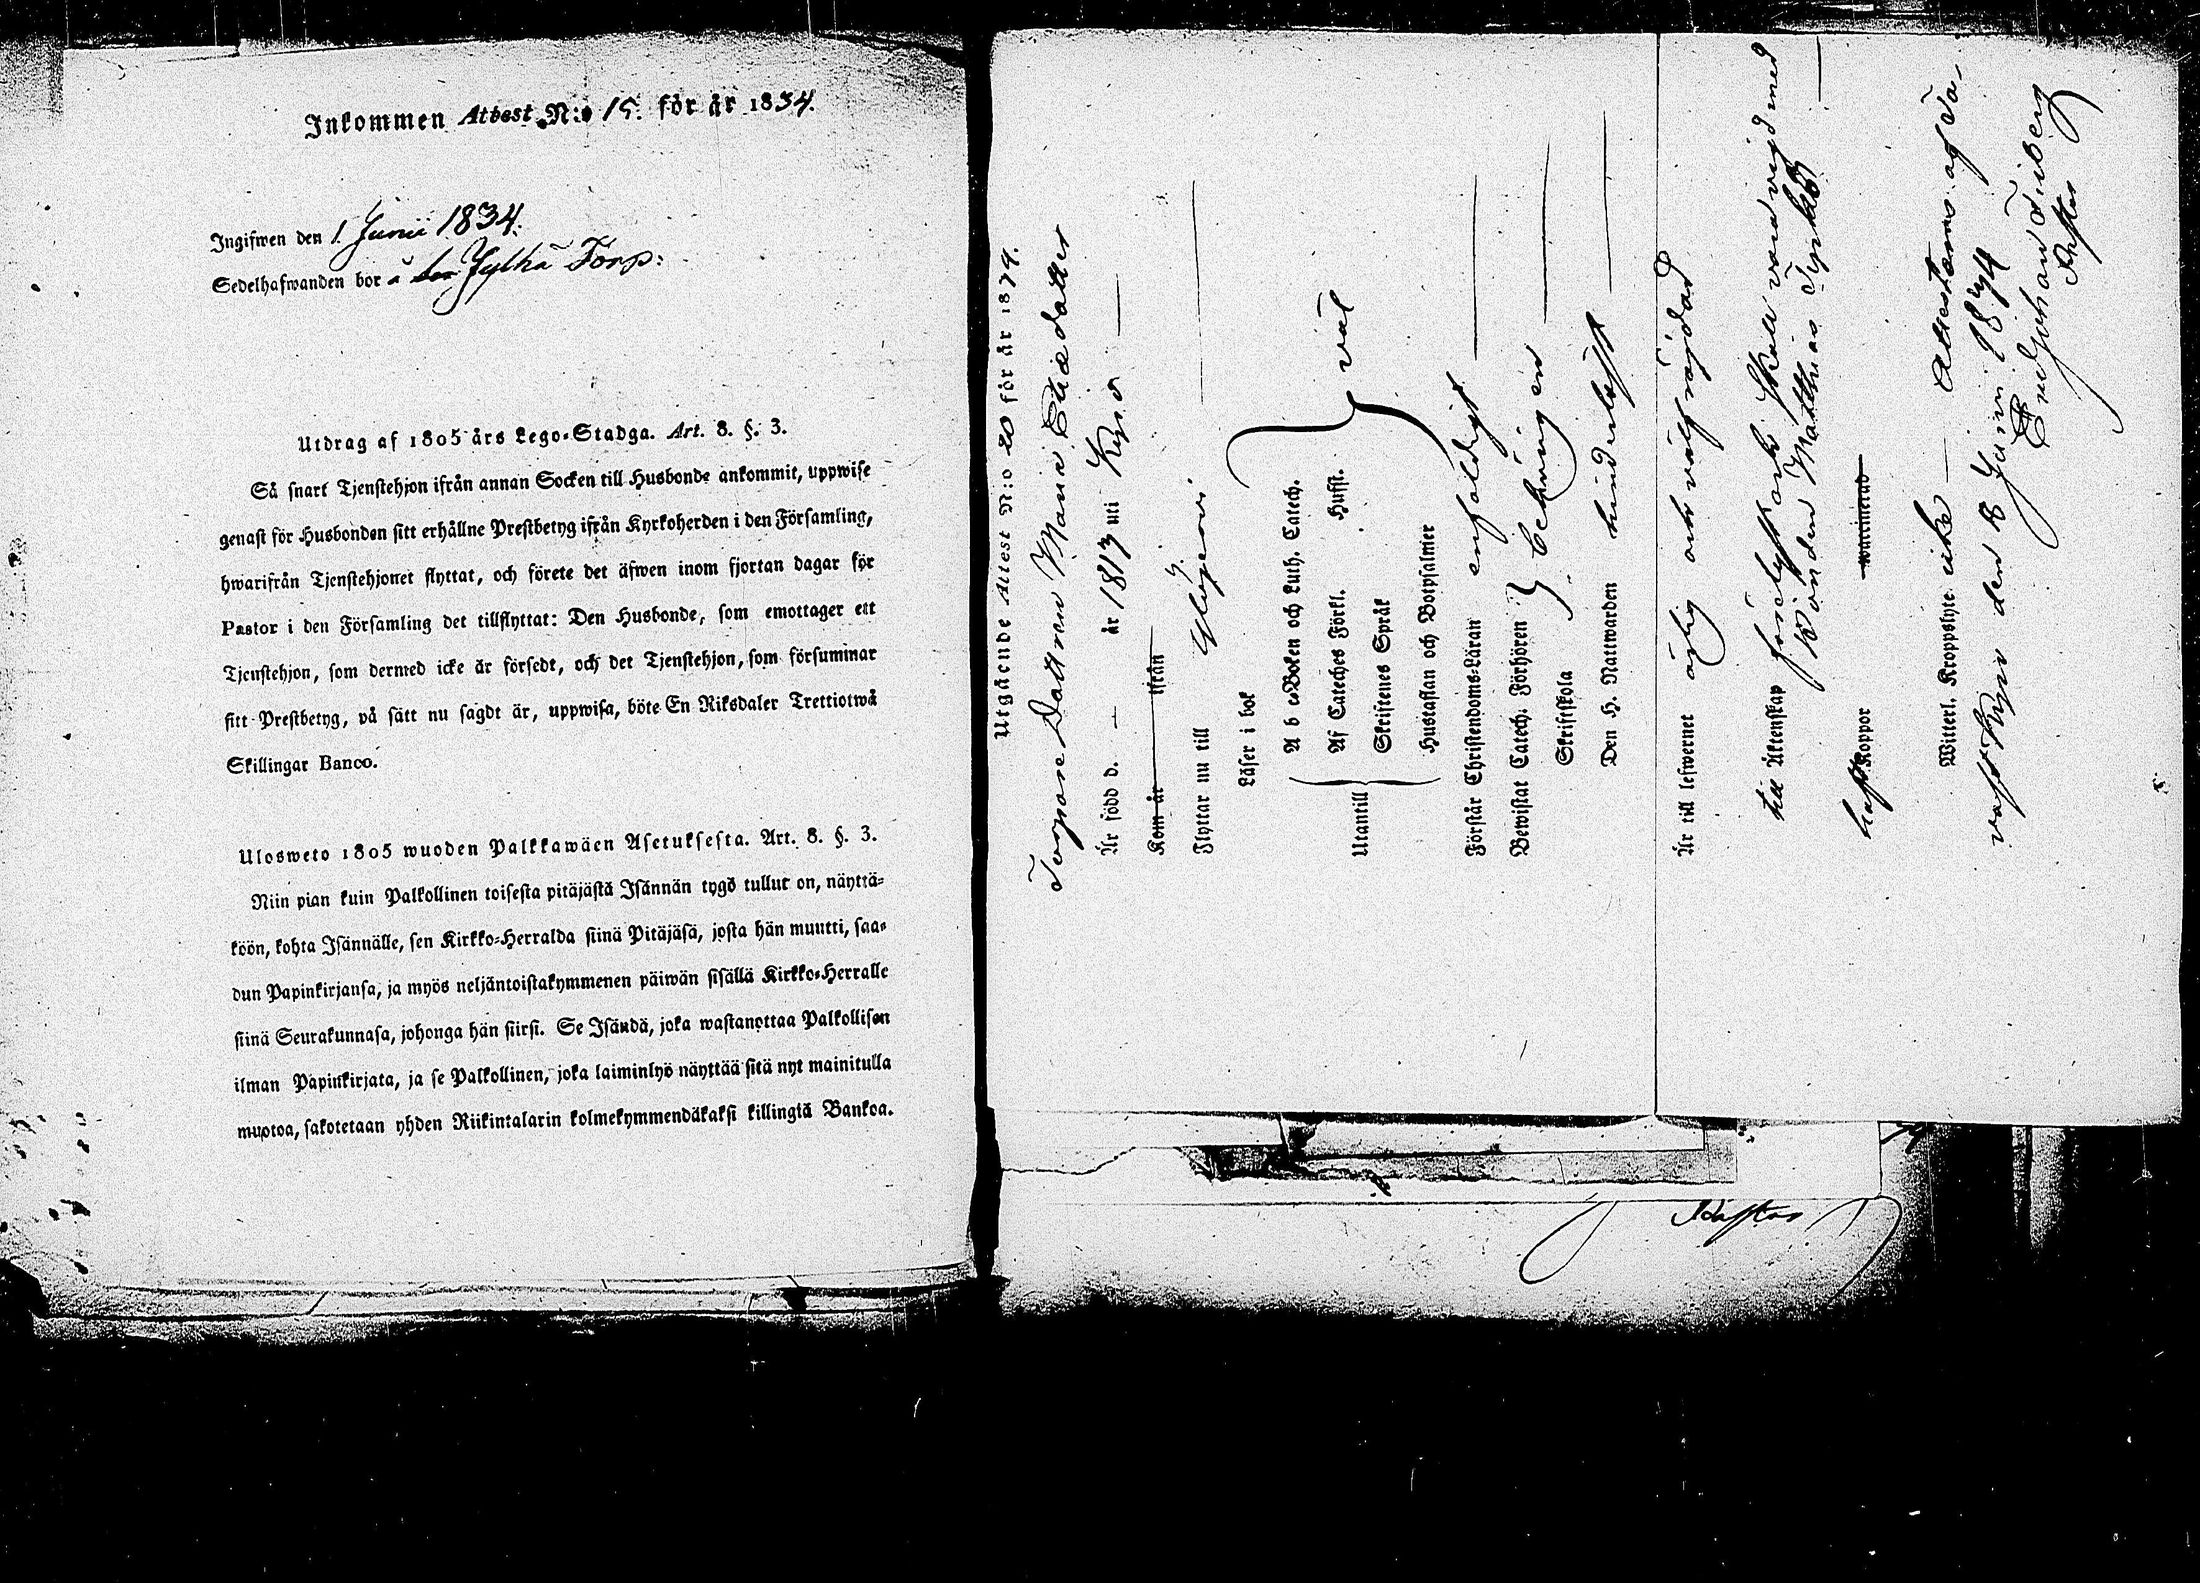 Inkommen Attest N:o 15. för år 1834.
Ingifwen den 1 Junii 1834.
Sedelhafwanden bor å Jylhä Torp:
Utdrag af 1805 års Lego-Stadga. Art. 8. §. 3.
Så snart Tjenstehjon ifrån annan Socken till Husbonde ankommit, uppwise
genast för Husbonden sitt erhållne Prestbetyg ifrån Kyrkoherden i den Församling,
hwarifrån Tjenstehjonet flyttat, och förete det äfwen inom fjortan dagar för
Pastor i den Församling det tillflyttat: Den Husbonde, som emottager ett
Tjenstehjon, som dermed icke är försedt, och det Tjenstehjon, som försuminar
sitt Prestbetyg, på sätt nu sagdt är, uppwisa, böte En Riksdaler Trettiotwå
Skillingar Banco.
Ulosweto 1805 wuoden Palkkawäen Asetuksesta. Art. 8. §. 3.
Niin pian kuin Palkollinen toisesta pitäjästä Isännän tygö tullut on, näyttä-
köön, kohta Isännälle, sen Kirkko-Herralda siinä Pitäjäsä, josta hän muutti, saa-
dun Papinkirjansa, ja myös neljäntoistakymmenen päiwän sisällä Kirkko-Herralle
siinä Seurakunnasa, johonga hän siirsi. Se Isändä, joka wastanottaa Palkollisen
ilman Papinkirjata, ja se Palkollinen, joka laiminlyö näyttää sitä nyt mainitulla
muotoa, sakotetaan yhden Riikintalarin kolmekymmendäkaksi killingiä Bankoa.
Utgående Attest N:o 20 för år 1834.
Torpare Dottren Maria Eliædotter
Är född d. — år 1813 uti Kyro —
Kom år — ifrån
Flyttar nu till
Läser i bok
A b c-Boken och Luth. Catech.
Af Cateches Förkl. Hufft.
Utantill
Skriftenes Språk
väl
Hustaflan och Botpsalmer
Förstår Christendoms-Läran enfaldigt
Bewistat Catech. Förhören
Skriftskola
Den H. Nattwarden hinderlöst
Är till lefwernet ärlig och välfräjdad
till Äktenskap förelyst och skall varda vigd med
Bonden Matthias
haft Koppor waccinerad
Witterl. Kroppslyte icke — Attesteras af Ta-
vastkyro den 8 Junii 1834
Pastor
Pastor